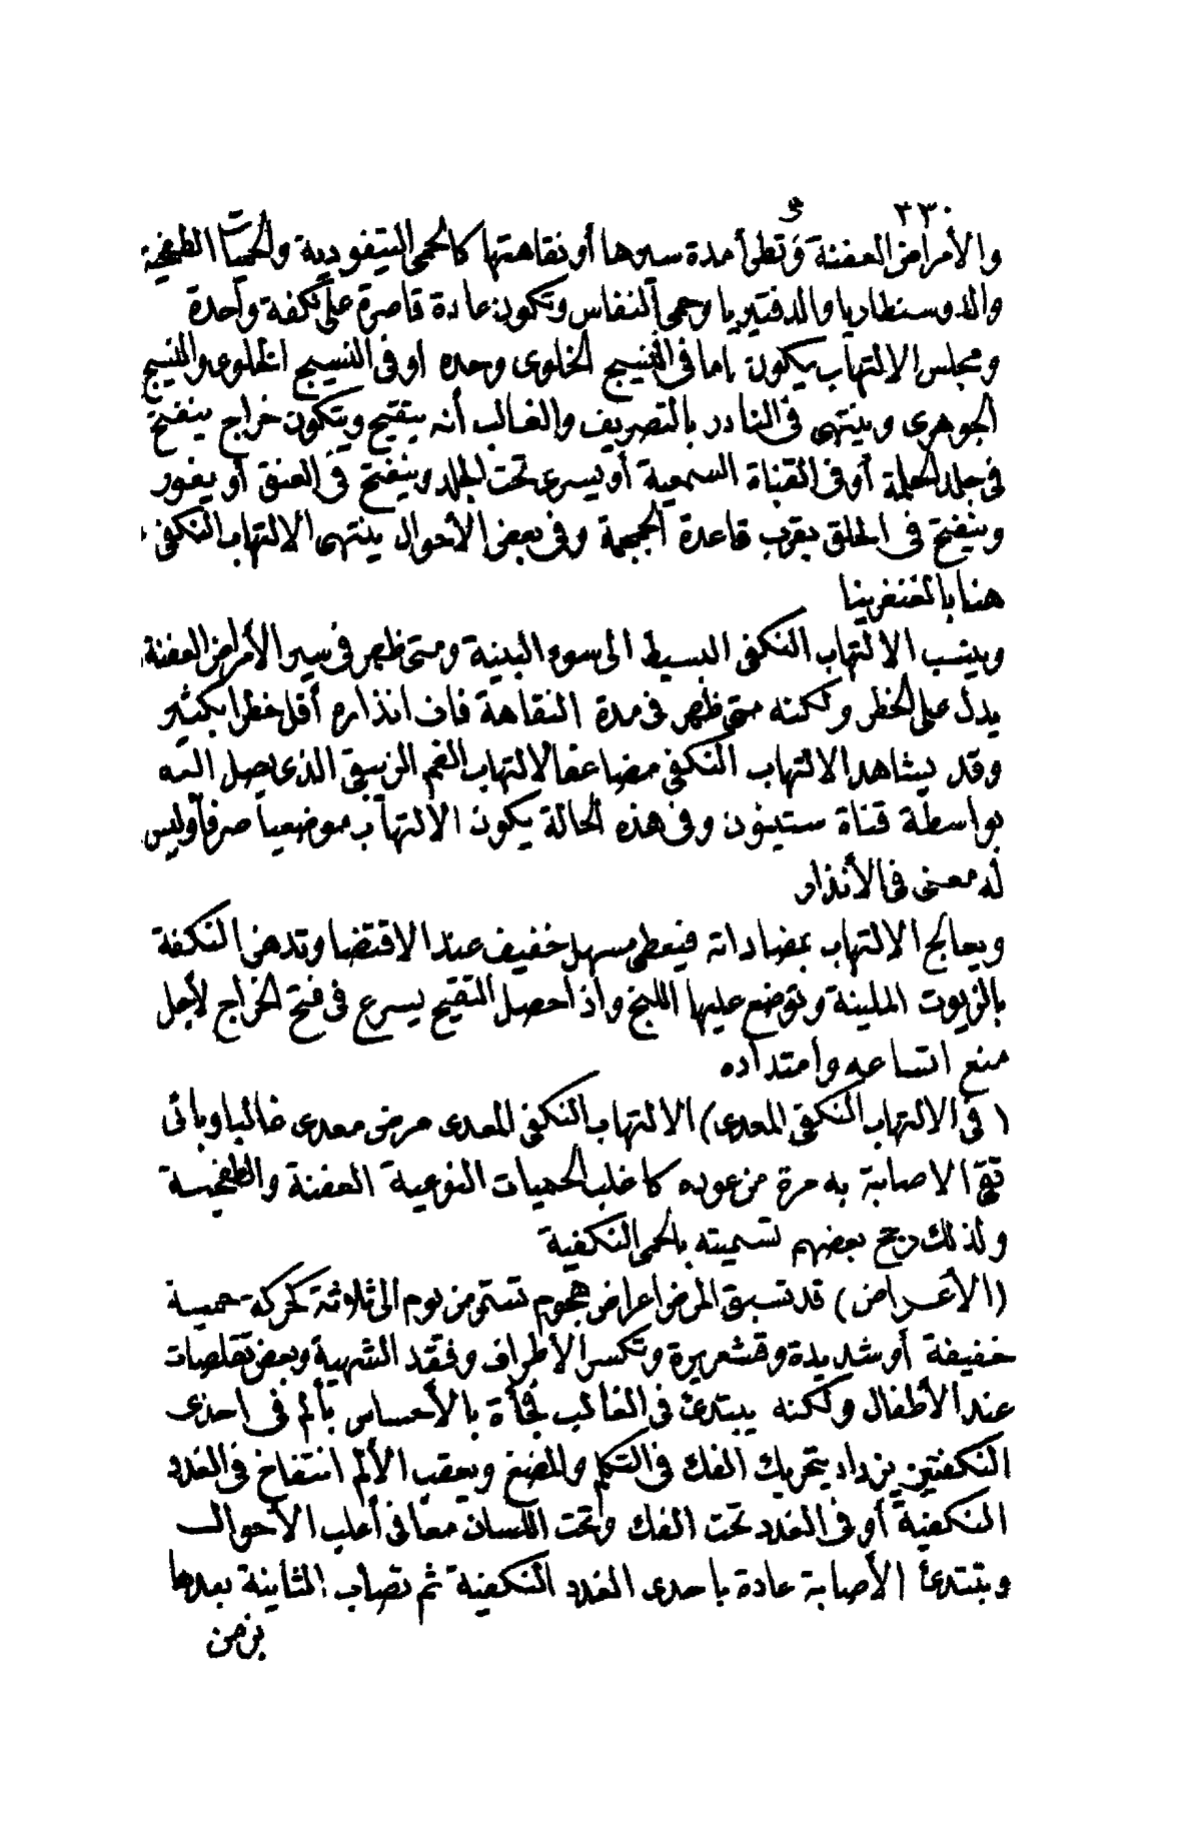 ٣٣٠
والأمراض العفنة وتطرأ مدة سيرها أو نقاهتها كالحمى التيفودية والحميات الطفحية
والدوسنطاريا والدفتيريا وحمى النفاس وتكون عادة قاصرة على نكفة واحدة
ومجلس الالتهاب يكون اما فى النسيج الخلوى وحده او فى النسيج الخلوى والنسيج
الجوهرى وينتهى فى النادر بالتصريف والغالب أنه يتقيح ويتكون خراج ينفتح
فى جلد الحلمة أو فى القناة السمعية أو يسرى تحت الجلد وينفتح فى العنق أو يغور
وينفتح فى الحلق بقرب قاعدة الجمجمة وفى بعض الأحوال ينتهى الالتهاب النكفى
هنا بالغنغرينا
وينسب الالتهاب النكفى البسيط الى سوء البنية ومتى ظهر فى سير الأمراض العفنة
يدل على الخطر ولكنه متى ظهر فى مدة النقاهة فان انذاره أقل خطرا بكثير
وقد يشاهد الالتهاب النكفى مضاعفا لالتهاب الفم الزيبقى الذى يصل اليه
بواسطة قناة ستينون وفى هذه الحالة يكون الالتهاب موضعيا صرفا وليس
له معنى فى الأنذار
ويعالج الالتهاب بمضاداته فيعطى مسهل خفيف عند الاقتضا وتدهن النكفة
بالزيوت الملينة وتوضع عليها اللبخ واذا حصل التقيح يسرع فى فتح الخراج لأجل
منع اتساعه وامتداده
(فى الالتهاب النكفى المعدى) الالتهاب النكفى المعدى مرض معدى غالبا وبائى
تقى الاصابة به مرة من عوده كاغلب الحميات النوعية العفنة والطفحيـة
ولذلك رجح بعضهم تسميته بالحمى النكفية
(الأعـراض) قد تسبق المرض اعراض هجوم تستمر من يوم الى ثلاثة كحركة حمية
خفيفة أو شديدة وقشعريرة وتكسر الأطراف وفقد الشهية وبعض تقلصات
عند الأطفال ولكنه يبتدئ فى الغالب فجأة بالأحساس بألم فى احدى
النكفتين يزداد بتحريك الفك فى التكلم والمضغ ويعقب الألم انتفاخ فى الغدد
النكفية أو فى الغدد تحت الفك وتحت اللسان معا فى أغلب الأحوال
وتبتدئ الأصابة عادة باحدى الغدد النكفية ثم تصاب الثانية بعدها
بزمن